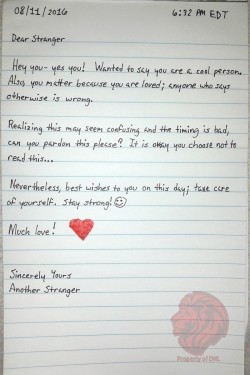 08/11/2016 6:32 PM EDT
Dear Stranger
Hey you- yes you! Wanted to say you are a cool person.
Also, you matter because you are loved; anyone who says
otherwise is wrong.
Realizing this may seem confusing and the timing is bad,
can you pardon this please? It is okay you choose not to
read this...
Nevertheless, best wishes to you on this day; take care
of yourself. Stay strong!
Much love!
Sincerely Yours
Another Stranger
Property of DHL